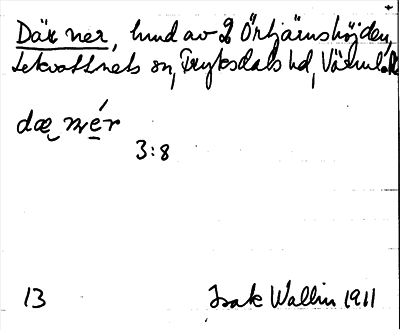 Där ner, lund av 2 Örtjärnshöjden,
Lekvattnets sn, Fryksdals hd, Värml.
dæ nér
3:8
13 Isak Wallin 1911